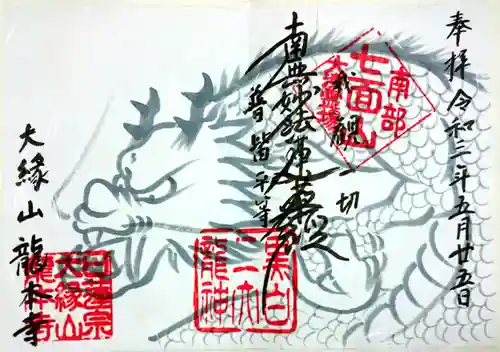 奉拝 令和三年五月廿五日
南部
七面山
我観一切
南無妙法蓮華経
普皆平等
黒白
二大
龍神
大縁山 龍本寺
日蓮宗
大縁山
龍本寺